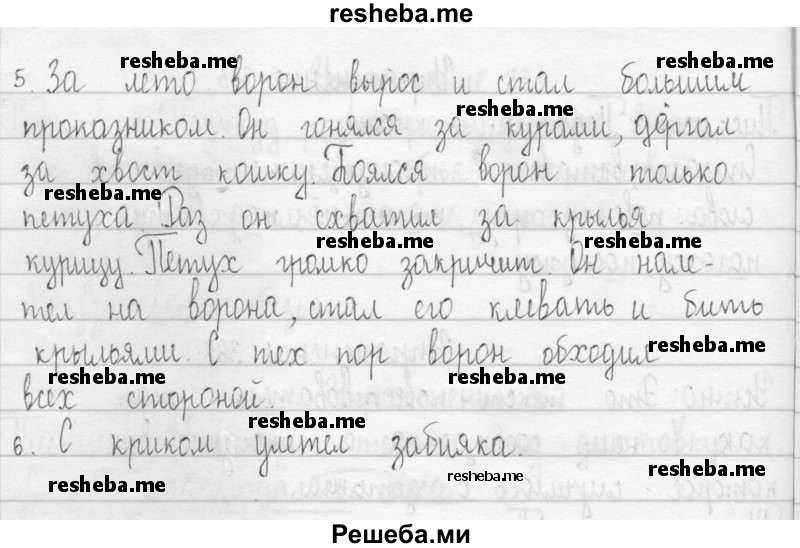 resheba.me
resheba.me resheba.me
5. За лето ворон вырос и стал большим
resheba.me
проказником. Он гонялся за курами, дёргал
за хвост кошку. Боялся ворон только
resheba.me resheba.me
петуха. Раз он схватил за крылья
resheba.me resheba.me
курицу. Петух громко закричит. Он нале-
тел на ворона, стал его клевать и бить
крыльями. С тех пор ворон обходил
resheba.me
resheba.me resheba.me
всех стороной.
resheba.me
6. С криком улетел забияка.
resheba.me resheba.me resheba.me
Решеба.ми